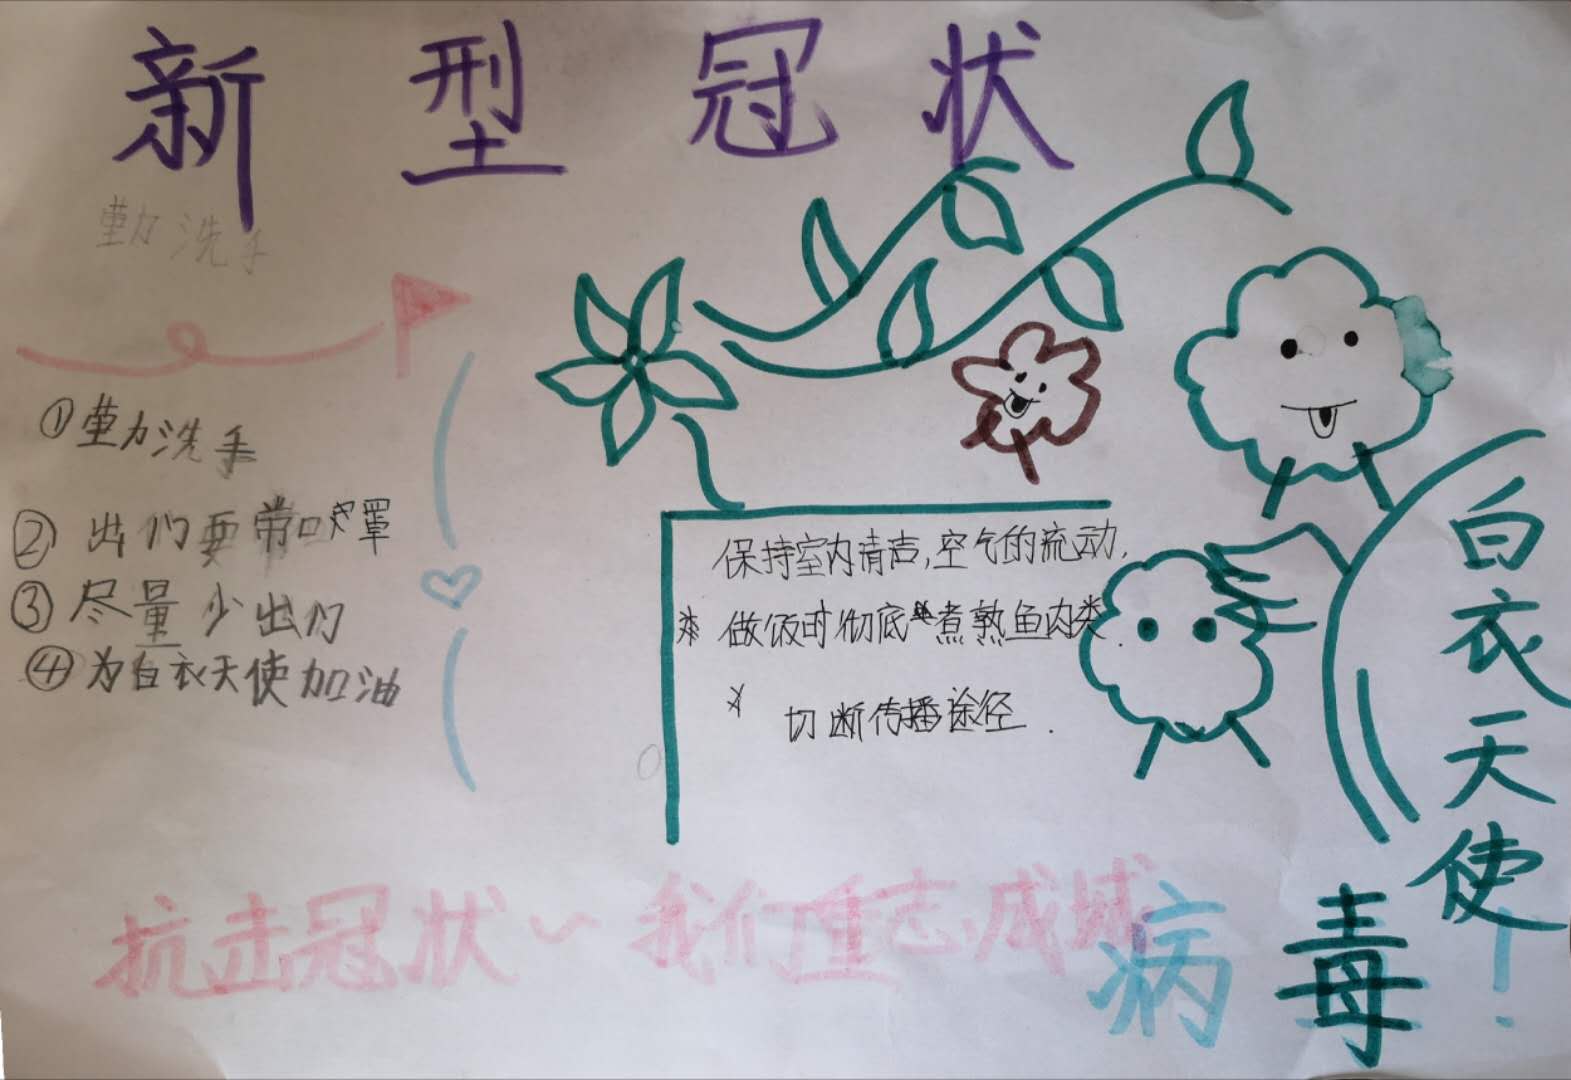 新型冠状
勤洗手
①勤洗手
②出们要带口罩
③尽量少出们
④为白衣天使加油
保持室内清洁,空气的流动,
做饭时彻底煮熟鱼肉类.
切断传播途径.
白衣天使
抗击冠状~我们重志成城
病毒!